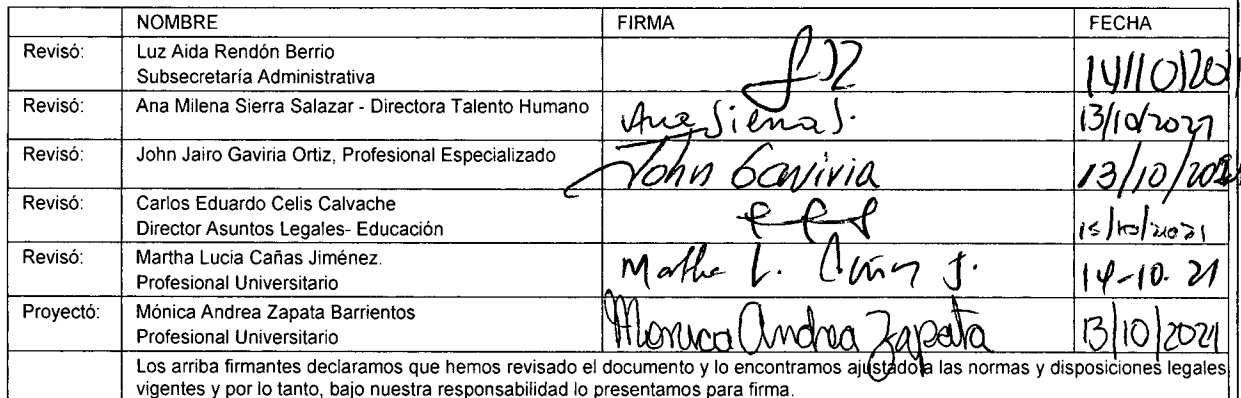 NOMBRE FIRMA FECHA
Revisó: Luz Aida Rendón Berrio
Subsecretaría Administrativa 14/10/202
Revisó: Ana Milena Sierra Salazar - Directora Talento Humano Ana Sierra S. 13/10/2021
Revisó: John Jairo Gaviria Ortiz, Profesional Especializado John Gaviria 13/10/202
Revisó: Carlos Eduardo Celis Calvache
Director Asuntos Legales- Educación 15/10/2021
Revisó: Martha Lucia Cañas Jiménez.
Profesional Universitario Martha L. Cañas J. 14-10. 21
Proyectó: Mónica Andrea Zapata Barrientos
Profesional Universitario Monica Andrea Zapata 13/10/2021
Los arriba firmantes declaramos que hemos revisado el documento y lo encontramos ajustado a las normas y disposiciones legales
vigentes y por lo tanto, bajo nuestra responsabilidad lo presentamos para firma.